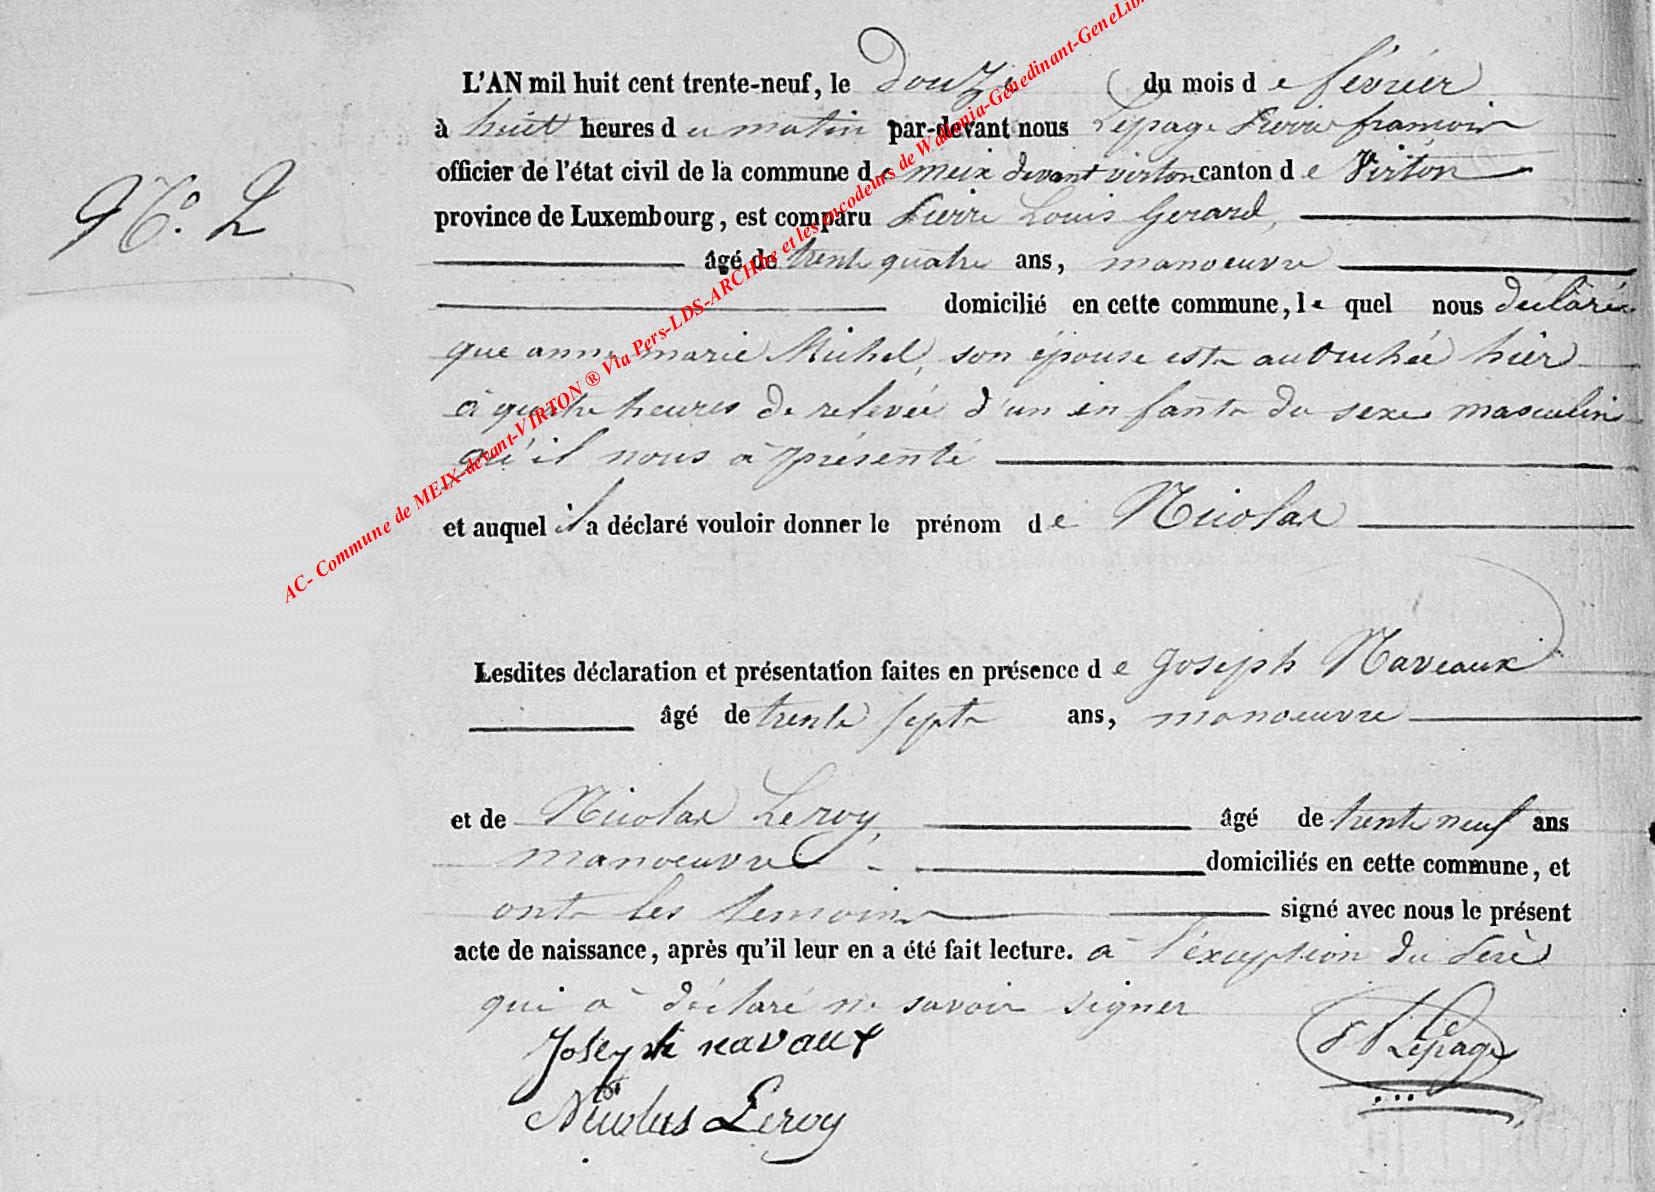 L'AN mil huit cent trente-neuf, le douze du mois de février
à huit heures du matin par-devant nous Lepage Pierre françois
officier de l'état civil de la commune de meix devant virton canton de Virton
province de Luxembourg, est comparu Pierre Louis Gerard,
âgé de trente quatre ans, manoeuvre
domicilié en cette commune, le quel nous déclaré
que anne marie Michel, son épouse est accouchée hier
à quatre heures de relevée d'un enfant du sexe masculin
qu'il nous à présenté
et auquel il a déclaré vouloir donner le prénom de Nicolas
N.° 2
Lesdites déclaration et présentation faites en présence de Joseph Naveaux
âgé de trente sept ans, manoeuvre
et de Nicolas Leroy, âgé de trente neuf ans
manoeuvre domiciliés en cette commune, et
ont les temoins signé avec nous le présent
acte de naissance, après qu'il leur en a été fait lecture. à l'éxception du Père
qui à déclaré ne savoir signer
Joseph navaux
Nicolas Leroy
Lepage
AC- Commune de MEIX-devant-VIRTON ® Via Pers-LDS-ARCHive et les encodeurs de Wallonia-Genedinant-GeneLib